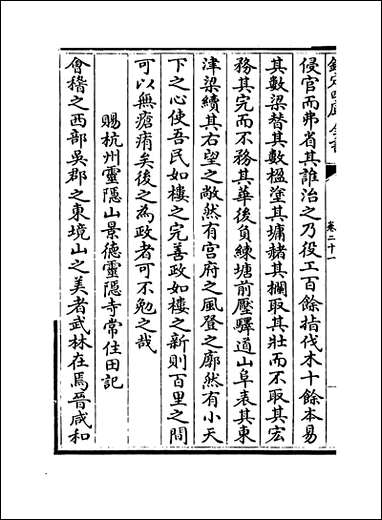 欽定四庫全書
卷二十一
侵官而弗省其誰治之乃役工百餘指伐木十餘本易
其數梁替其數楹塗其墉赭其攔取其壯而不取其宏
務其完而不務其華後負練塘前壓驛道山阜表其東
津梁續其右望之敞然有宫府之風登之廓然有小天
下之心使吾民如樓之完善政如樓之新則百里之間
可以無瘡痏矣後之為政者可不勉之哉
賜杭州靈隠山景德靈隠寺常住田記
會稽之西部吳郡之東境山之美者武林在焉晉咸和